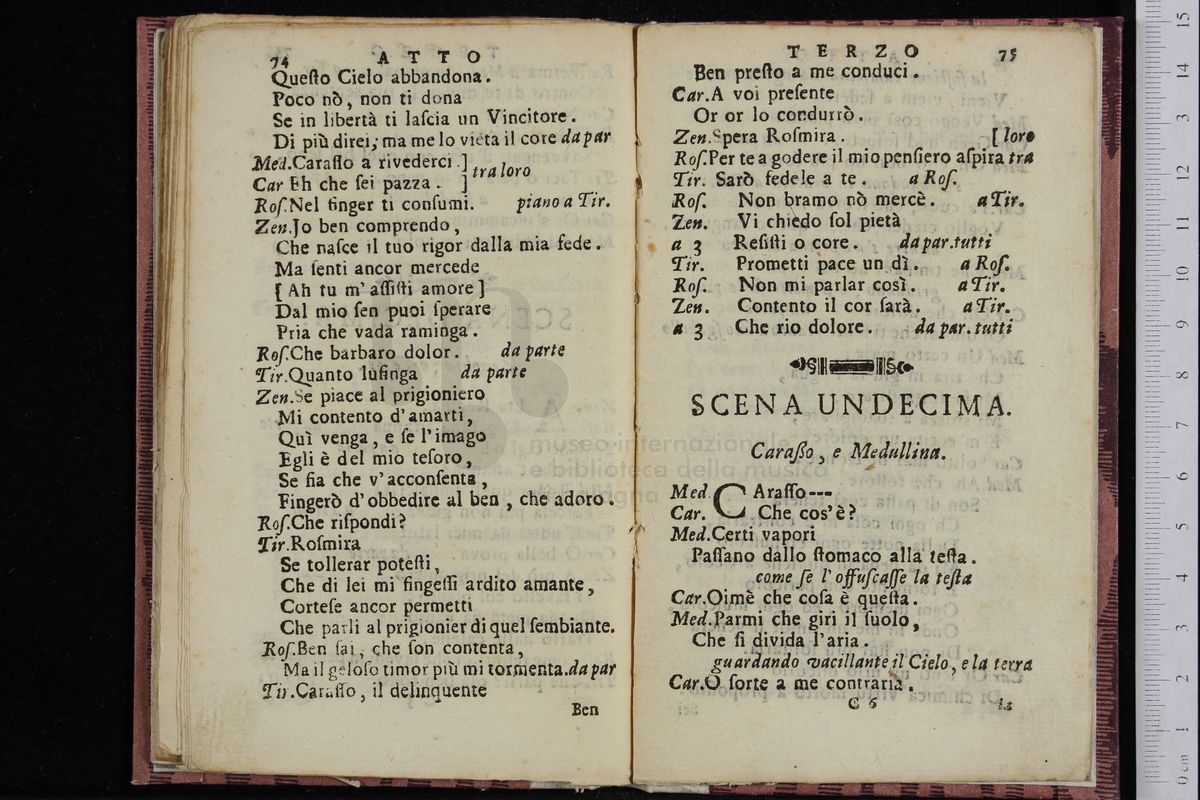 74 ATTO
Queſto Cielo abbandona.
Poco nò, non ti dona
Se in libertà ti laſcia un Vincitore.
Di più direi; ma me lo vieta il core da par
Med.Caraſſo a rivederci.]
Car Eh che ſei pazza. ] tra loro
Roſ.Nel finger ti conſumi. piano a Tir.
Zen.Jo ben comprendo,
Che naſce il tuo rigor dalla mia fede.
Ma ſenti ancor mercede
[ Ah tu m'aſſiſti amore ]
Dal mio ſen puoi ſperare
Pria che vada raminga.
Roſ.Che barbaro dolor. da parte
Tir.Quanto luſinga da parte
Zen.Se piace al prigioniero
Mi contento d'amarti,
Quì venga, e ſe l'imago
Egli è del mio teſoro,
Se fia che v'acconſenta,
Fingerò d'obbedire al ben, che adoro.
Roſ.Che riſpondi?
Tir.Roſmira
Se tollerar poteſti,
Che di lei mi fingeſſi ardito amante,
Corteſe ancor permetti
Che parli al prigionier di quel ſembiante.
Roſ.Ben ſai, che ſon contenta,
Ma il geloſo timor più mi tormenta.da par
Tir.Caraſſo, il delinquente
Ben
TERZO 75
Ben preſto a me conduci.
Car.A voi preſente
Or or lo condurrò.
Zen.Spera Roſmira. [ loro
Roſ.Per te a godere il mio penſiero aſpira tra
Tir. Sarò fedele a te. a Roſ.
Roſ. Non bramo nò mercè. a Tir.
Zen. Vi chiedo ſol pietà
a 3 Reſiſti o core. da par.tutti
Tir. Prometti pace un dì. a Roſ.
Roſ. Non mi parlar così. a Tir.
Zen. Contento il cor ſarà. a Tir.
a 3 Che rio dolore. da par. tutti
SCENA UNDECIMA.
Caraſſo, e Medullina.
Med. CAraſſo---
Car. Che cos'è?
Med.Certi vapori
Paſſano dallo ſtomaco alla teſta.
come ſe l'offuſcaſſe la teſta
Car.Oimè che coſa è queſta.
Med.Parmi che giri il ſuolo,
Che ſi divida l'aria.
guardando vacillante il Cielo, e la terra
Car.O ſorte a me contraria.
C 6
museo internazionale
e biblioteca della musica